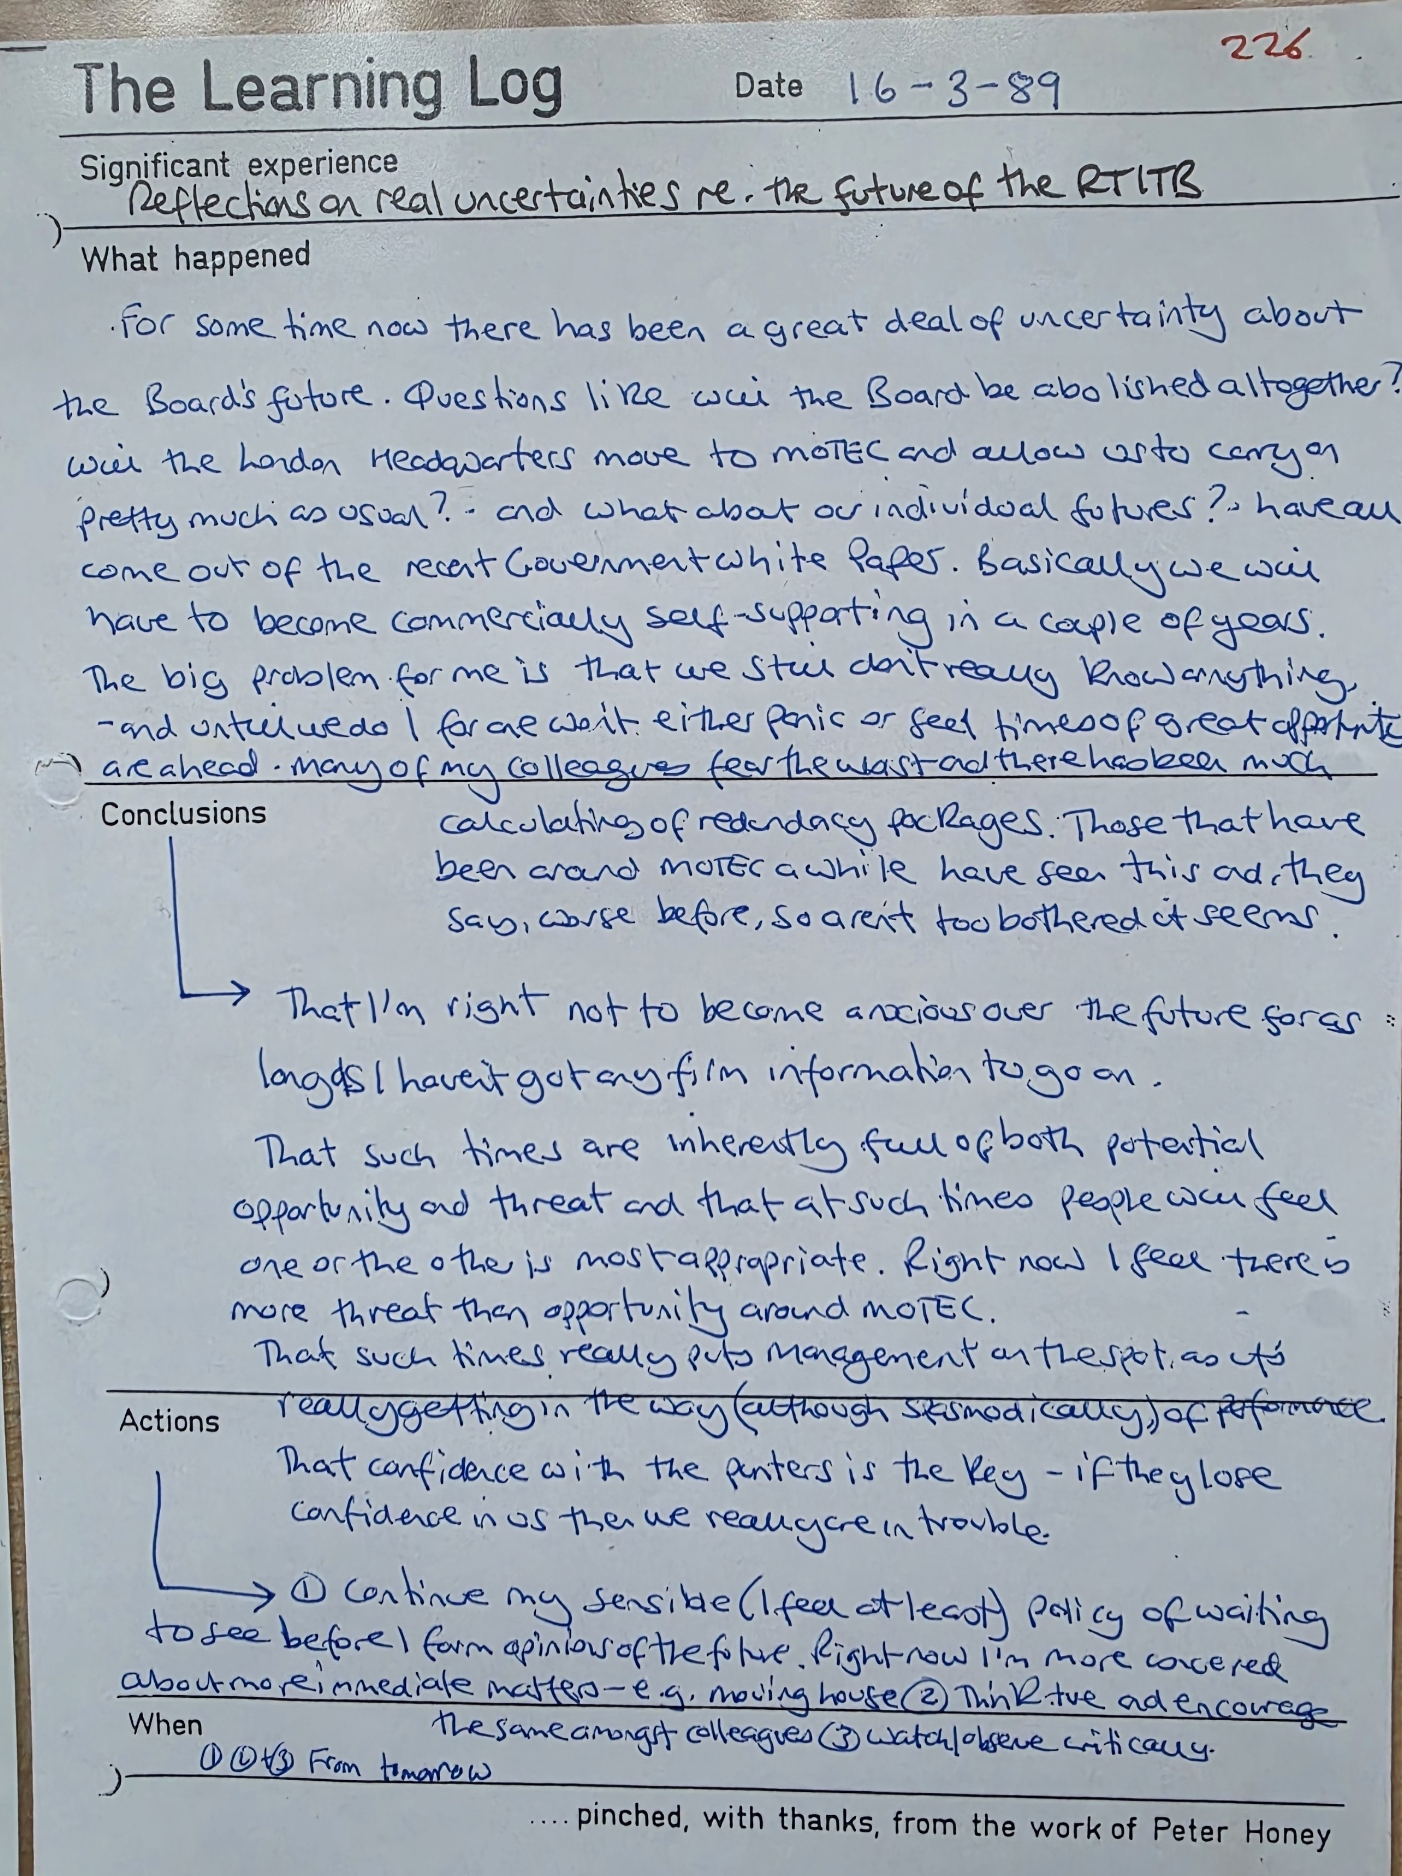 226.
The Learning Log Date 16-3-89
Significant experience
Reflections on real uncertainties re. the future of the RTITB
What happened
For some time now there has been a great deal of uncertainty about
the Board's future. Questions like will the Board be abolished altogether?
will the London Headquarters move to MOTEC and allow us to carry on
pretty much as usual? - and what about our individual futures? - have all
come out of the recent Government White Paper. Basically we will
have to become commercially self-supporting in a couple of years.
The big problem for me is that we still don't really know anything,
- and until we do I for one won't either panic or feel times of great opportunity
are ahead. Many of my colleagues fear the worst and there has been much
Conclusions
calculating of redundacy packages. Those that have
been around MOTEC a while have seen this and, they
say, worse before, so aren't too bothered it seems.
That I'm right not to become anxious over the future for as
long as I haven't got any firm information to go on.
That such times are inherently full of both potential
opportunity and threat and that at such times people will feel
one or the other is most appropriate. Right now I feel there is
more threat than opportunity around MOTEC.
That such times really puts management on the spot, as it's
really getting in the way (although spasmodically) of performance.
Actions
That confidence with the punters is the key - if they lose
confidence in us then we really are in trouble.
① Continue my sensible (I feel at least) policy of waiting
to see before I form opinions of the future. Right now I'm more concerned
about more immediate matters - e.g. moving house ② Think +ve and encourage
When
the same amongst colleagues ③ Watch/observe critically.
① ② + ③ From tomorrow
.... pinched, with thanks, from the work of Peter Honey